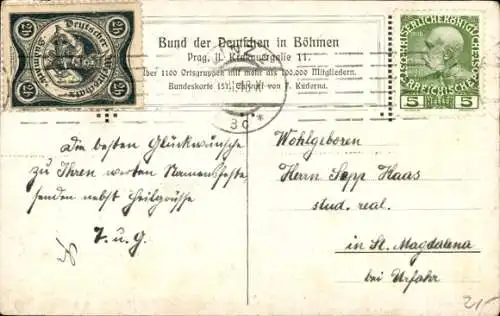 25 25
Deutscher
25 25
Bund der Deutschen in Böhmen
Prag, II. Krakauergasse 11.
Über 1100 Ortsgruppen mit mehr als 100,000 Mitgliedern.
Bundeskarte 151. Entwurf von F. Kuderna.
5 HELLER 5
LINZ
3c
Die besten Glückwünsche
zu Ihren werten Namensfeste
senden nebst Heilgrüsse
F. u. G.
Wohlgeboren
Herrn Sepp Haas
stud. real.
in St. Magdalena
bei Urfahr